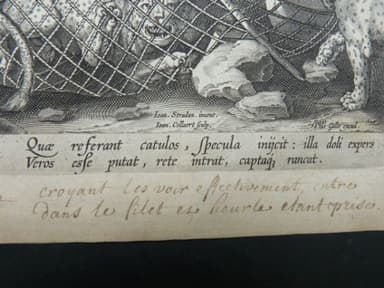 Ioan. Stradan. invent.
Ioan. Collaert sculp.
Phls Galle excud.
Quæ referant catulos, specula inijcit : illa doli expers
Veros esse putat, rete intrat, captaq; rancat.
croyant les voir effectivement, entre
dans le filet et heurle etant prise